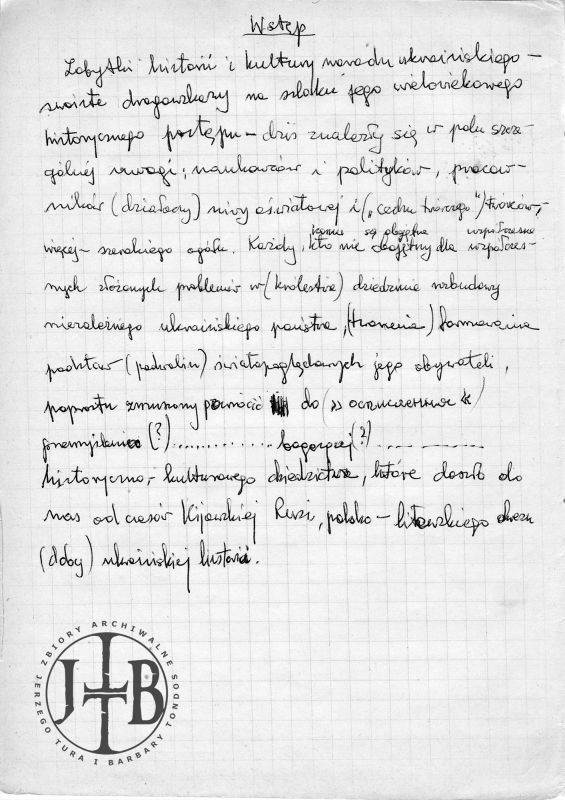 Wstęp
Zabytki historii i kultury narodu ukraińskiego –
swoiste drogowskazy na szlaku jego wielowiekowego
historycznego postępu – dziś znalazły się w polu szcze-
gólnej uwagi: naukowców i polityków, pracow-
ników (działaczy) niwy oświatowej i („cechu twórczego") twórców,
więcej – szerokiego ogółu. Każdy, kto nie obojętny dla współczes-
komu są obojętne współczesne
nych złożonych problemów w (królestwie) dziedzinie rozbudowy
niezależnego ukraińskiego państwa, (tworzenia) formowania
podstaw (podwalin) światopoglądowych jego obywateli,
poprostu zmuszony powrócić do („осмислення")
przemyślenia (?) ............ bogatszej (?) .... ........
historyczno-kulturowego dziedzictwa, które doszło do
nas od czasów Kijowskiej Rusi, polsko-litewskiego okresu
(doby) ukraińskiej historii.
ZBIORY ARCHIWALNE
JERZEGO TURA I BARBARY TONDOS
JTB